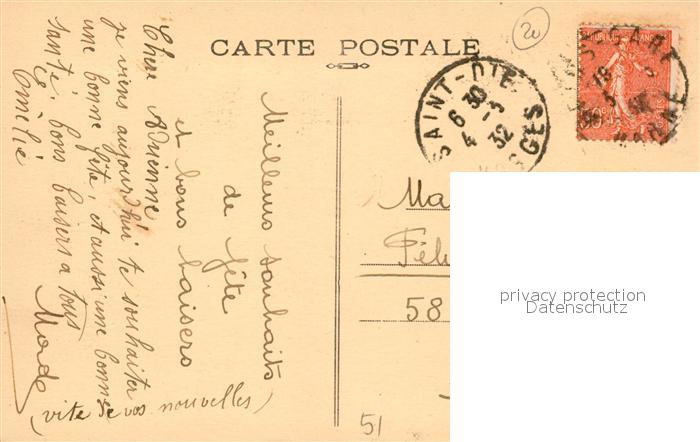 CARTE POSTALE
20
Chère Adrienne
je viens aujourd'hui te souhaiter
une bonne fête, et aussi une bonne
santé. bons baisers à tous
Emélie
Meilleurs souhaits
de fête
et bons baisers
(vite de vos nouvelles)
SAINT-DIÉ
6 30
4 -3
32
VOSGES
Ma
Féli
58
51
privacy protection
Datenschutz